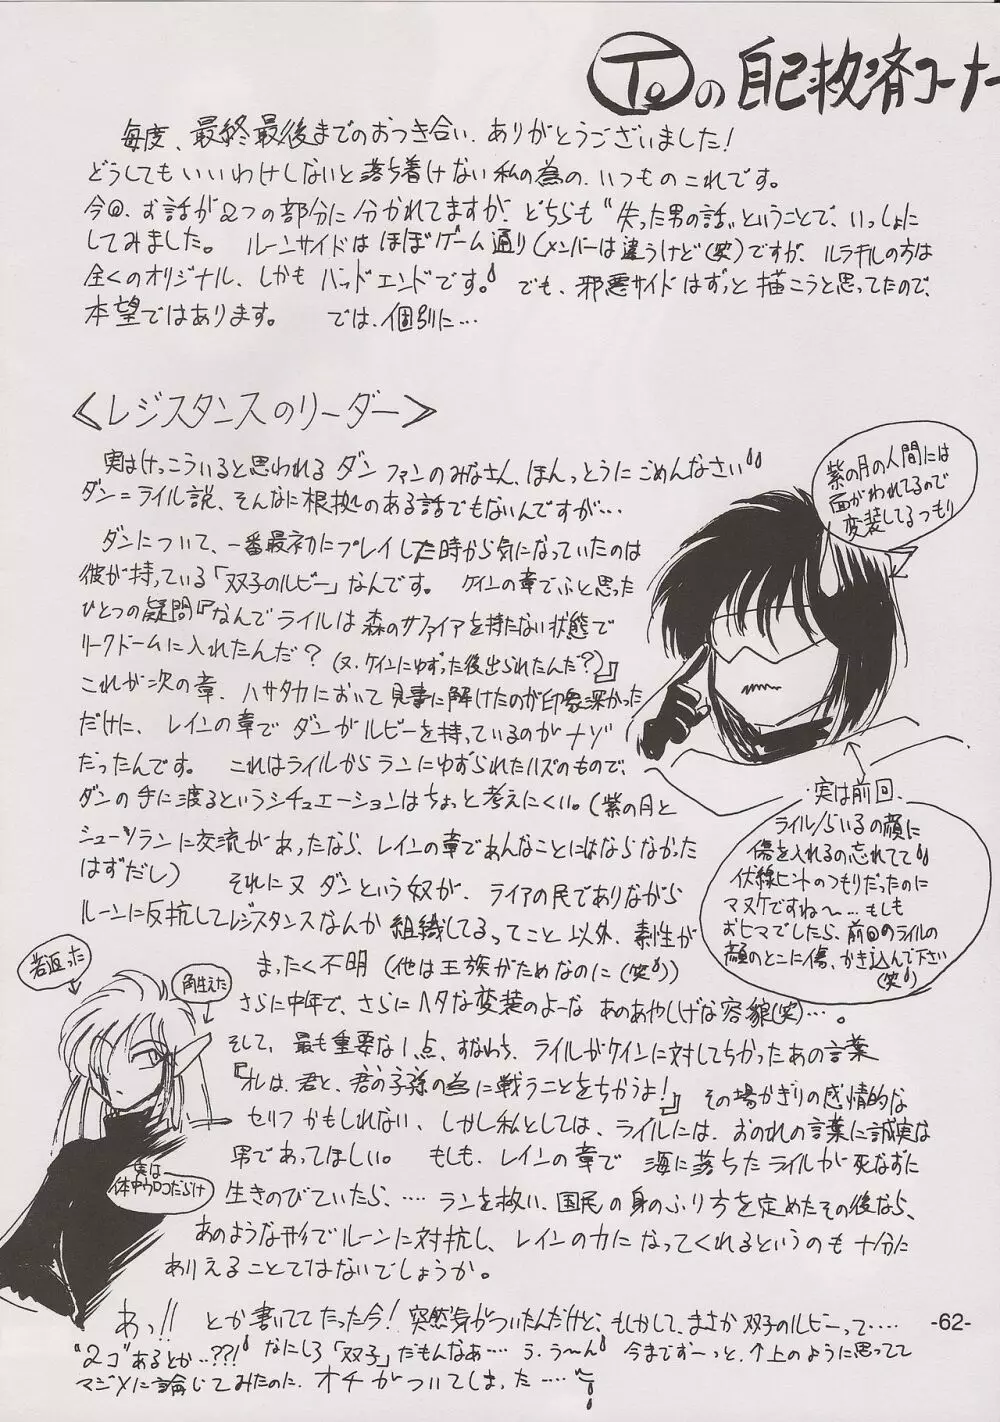 Toの自己救済コーナー
毎度、最終最後までのおつき合い、ありがとうございました!
どうしてもいいわけしないと落ち着けない私の為の、いつものこれです。
今回、お話が2つの部分に分かれてますが、どちらも“失った男の話”ということで、いっしょに
してみました。 ルーンサイドはほぼゲーム通り(メンバーは違うけど(笑)ですが、ルラチルの方は
全くのオリジナル、しかもバッドエンドです。でも、邪悪サイドはずっと描こうと思ってたので、
本望ではあります。 では、個別に…
≪レジスタンスのリーダー≫
実はけっこういると思われるダンファンのみなさん、ほんっとうにごめんなさい
ダン=ライル説、そんなに根拠のある話でもないんですが…
ダンについて、一番最初にプレイした時から気になっていたのは
彼が持っている「双子のルビー」なんです。 ケインの章でふと思った
ひとつの疑問『なんでライルは森のサファイアを持たない状態で
リークドームに入れたんだ?(又、ケインにゆずった後出られたんだ?)』
これが次の章、ハサタカにおいて見事に解けたのが印象深かった
だけに、レインの章でダンがルビーを持っているのがナゾ
だったんです。 これはライルからランにゆずられたハズのもので、
ダンの手に渡るというシチュエーションはちょっと考えにくい。(紫の月と
シューソランに交流があったなら、レインの章であんなことにはならなかった
はずだし) それに又ダンという奴が、ライアの民でありながら
ルーンに反抗してレジスタンスなんか組織してるってこと以外、素性が
まったく不明(他は王族がためなのに(笑))
さらに中年で、さらにハタな変装のよーなあのあやしげな容貌(笑)…。
そして、最も重要な1点、すなわち、ライルがケインに対してちかったあの言葉
『オレは、君と、君の子孫の為に戦うことをちかうよ!』その場かぎりの感情的な
セリフかもしれない、しかし私としては、ライルには、おのれの言葉に誠実な
男であってほしい。 もしも、レインの章で海に落ちたライルが死なずに
生きのびていたら、…… ランを救い、国民の身のふり方を定めたその後なら、
あのような形でルーンに対抗し、レインの力になってくれるというのも十分に
ありえることではないでしょうか。
あっ!! とか書いててたった今!突然気がついたんだけど、もしかして、まさか双子のルビーって……
“2コ”あるとか…??! なにしろ「双子」だもんなぁ…… う、う～ん 今まずーっと、↑上のように思ってて
マジメに論じてみたのに、オチがついてしまった……
紫の月の人間には
面がわれてるので
変装してるつもり
実は前回、
ライル/らいるの顔に
傷を入れるの忘れてて
伏線ヒントのつもりだったのに
マヌケですね～…もしも
おヒマでしたら、前回のライルの
顔のとこに傷、かき込んで下さい
(笑)
若返った
角生えた
実は
体中ウロコだらけ
-62-